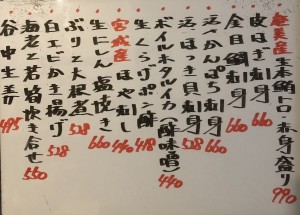 奄美産 生本鮪トロ・赤身盛り 990
皮はぎ刺身 660
金目鯛刺身 660
活〆かんぱち刺身 660
活〆ほっき貝刺身 528
ボイルホタルイカ(酢味噌) 440
生くらげポン酢 418
宮城産 ほや刺し 440
生にしん塩焼き 660
ぶりと大根煮 528
白エビかき揚げ 528
海老と若筍炊き合せ 550
谷中生姜 495